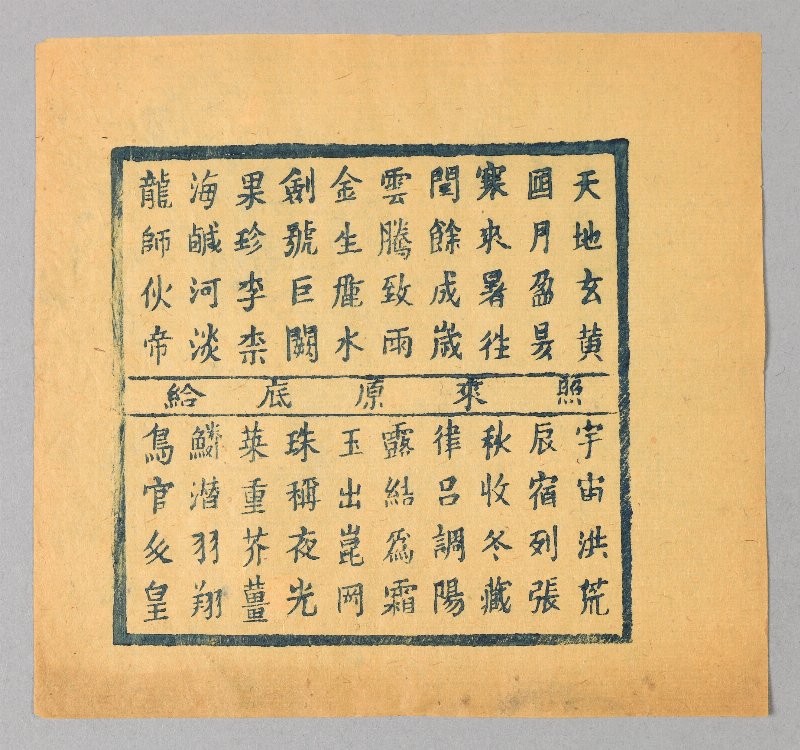 天地玄黄
囸月盈昃
寒來暑往
閏餘成歲
雲騰致雨
金生麗水
劍號巨闕
果珍李柰
海鹹河淡
龍師伙帝
照來原底給
宇宙洪荒
辰宿列張
秋收冬藏
律呂調陽
露結爲霜
玉出崑网
珠稱夜光
菜重芥薑
鱗潛羽翔
鳥官皇